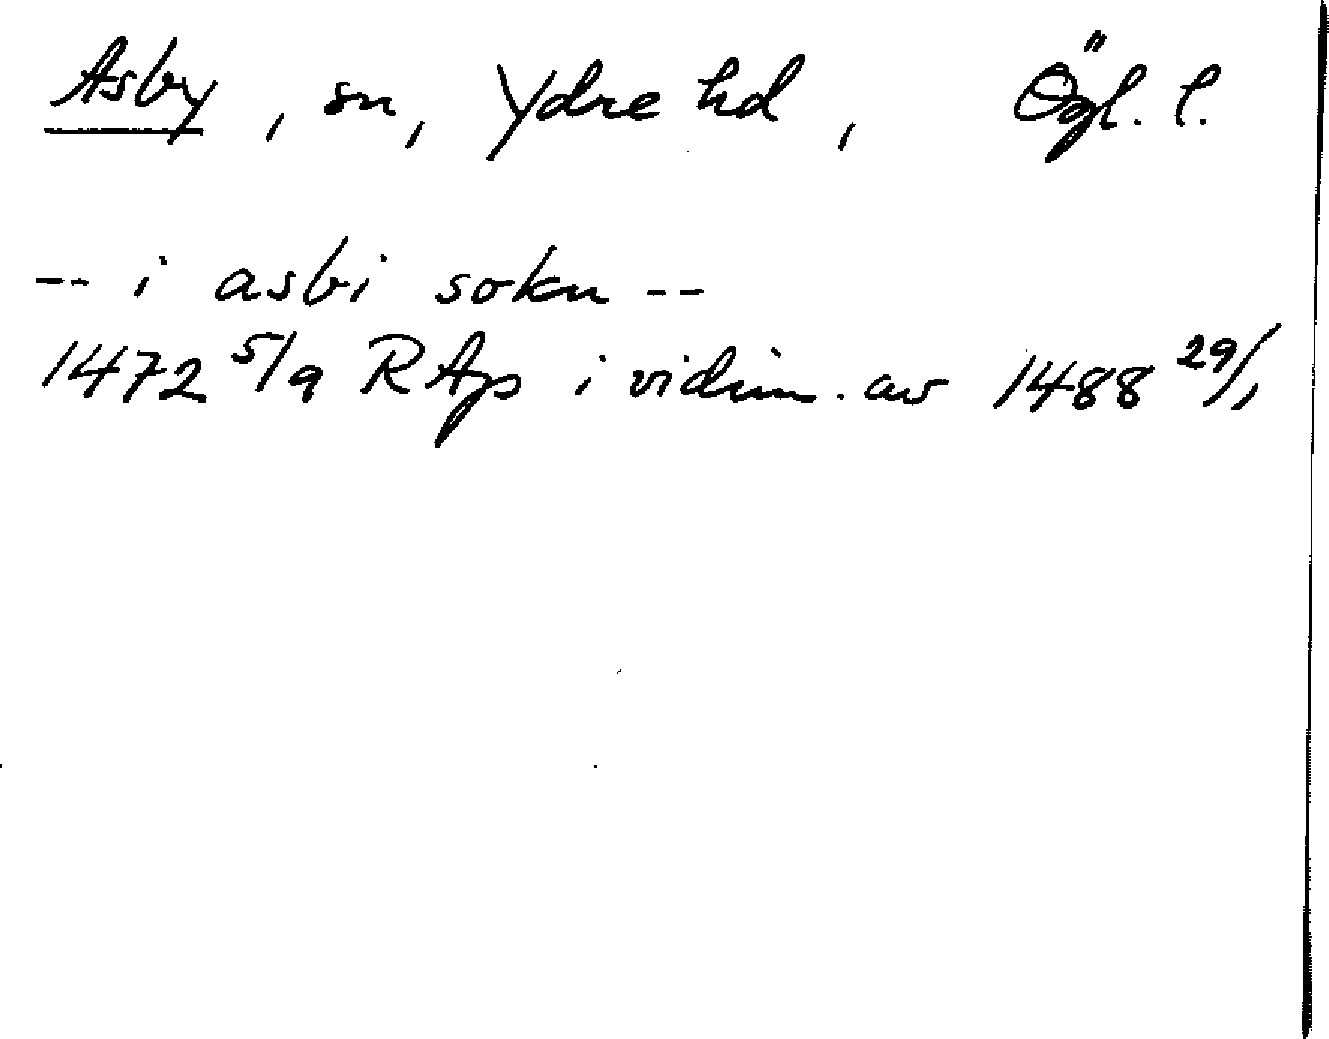 Asby, sn, Ydre hd, Ögl. l.
-- i asbi sokn --
1472 5/9 RAp i vidim. av 1488 29/1